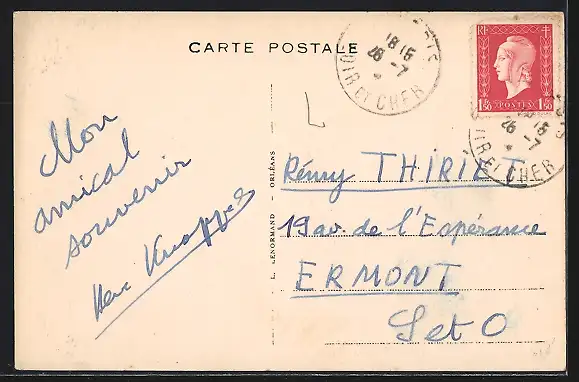 CARTE POSTALE
18 15
26 -7
*
LOIR ET CHER
RF
1F50 POSTES 1F50
18 15
26 -7
*
LOIR ET CHER
Mon
amical
souvenir
L. LENORMAND - ORLÉANS
Rémy THIRIET
19 av. de l'Espérance
ERMONT
S et O